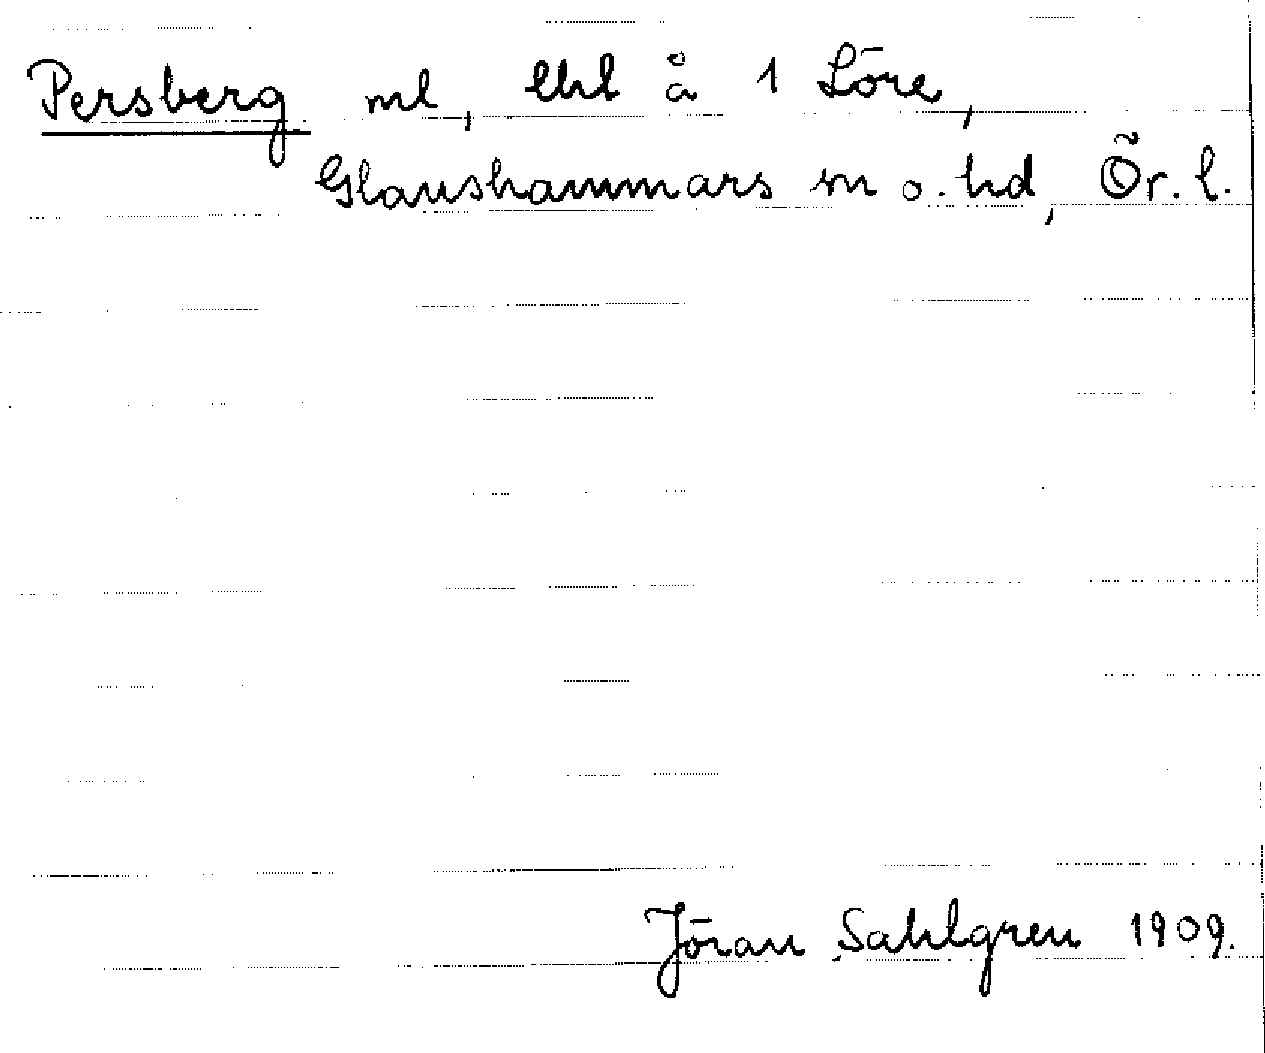 Persberg ml, lhl å 1 Löre,
Glanshammars sn o. hd, Ör. l.
Jöran Sahlgren 1909.